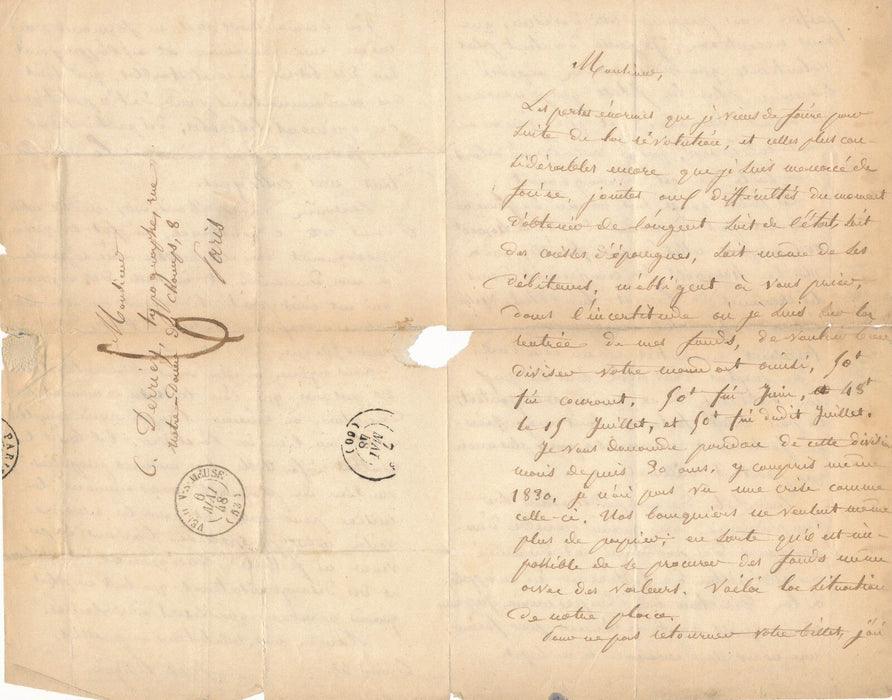 Monsieur
C. Derriey, typographe, rue
Notre Dame des Champs, 8
Paris
PARIS
7
MAI
48
(60)
VERD. S-MEUSE
6
MAI
48
(53)
Monsieur,
Les pertes énormes que je viens de faire pour
suite de la révolution, et celles plus con-
sidérables encore que je suis menacé de
faire, jointes aux difficultés du moment
d'obtenir de l'argent soit de l'état, soit
des caisses d'épargnes, soit même de ses
débiteurs, m'obligent à vous prier,
dans l'incertitude où je suis sur la
rentrée de mes fonds, de vouloir bien
diviser votre mandat ainsi, 50f
fin courant, 50f fin Juin, 48f
le 15 Juillet, et 50f fin dudit Juillet.
Je vous demande pardon de cette division
mais depuis 30 ans, y compris même
1830, je n'ai pas vu une crise comme
celle-ci. Nos banquiers ne veulent même
plus de papier; en sorte qu'il est im-
possible de se procurer des fonds même
avec des valeurs. Voilà la situation
de notre place.
Pour ne pas retourner votre billet, j'ai